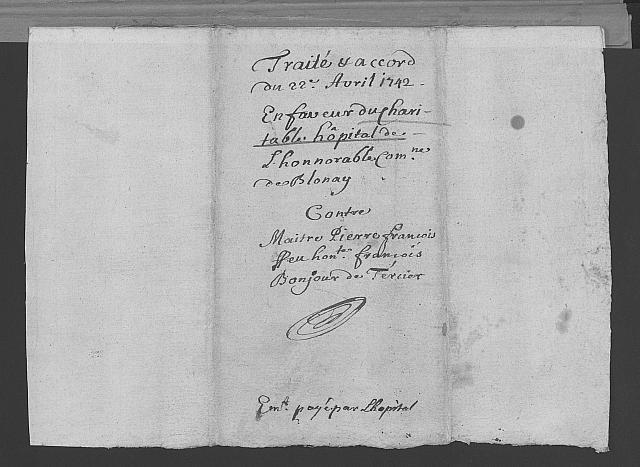 Traité & accord
du 22e. Avril 1742.
En faveur du Chari-
table hôpital de
L'honnorable Com.ne
de Blonay
Contre
Maitre Pierre François
ffeu hon.te François
Bonjour de Tercier
Em.t payé par Lhopital